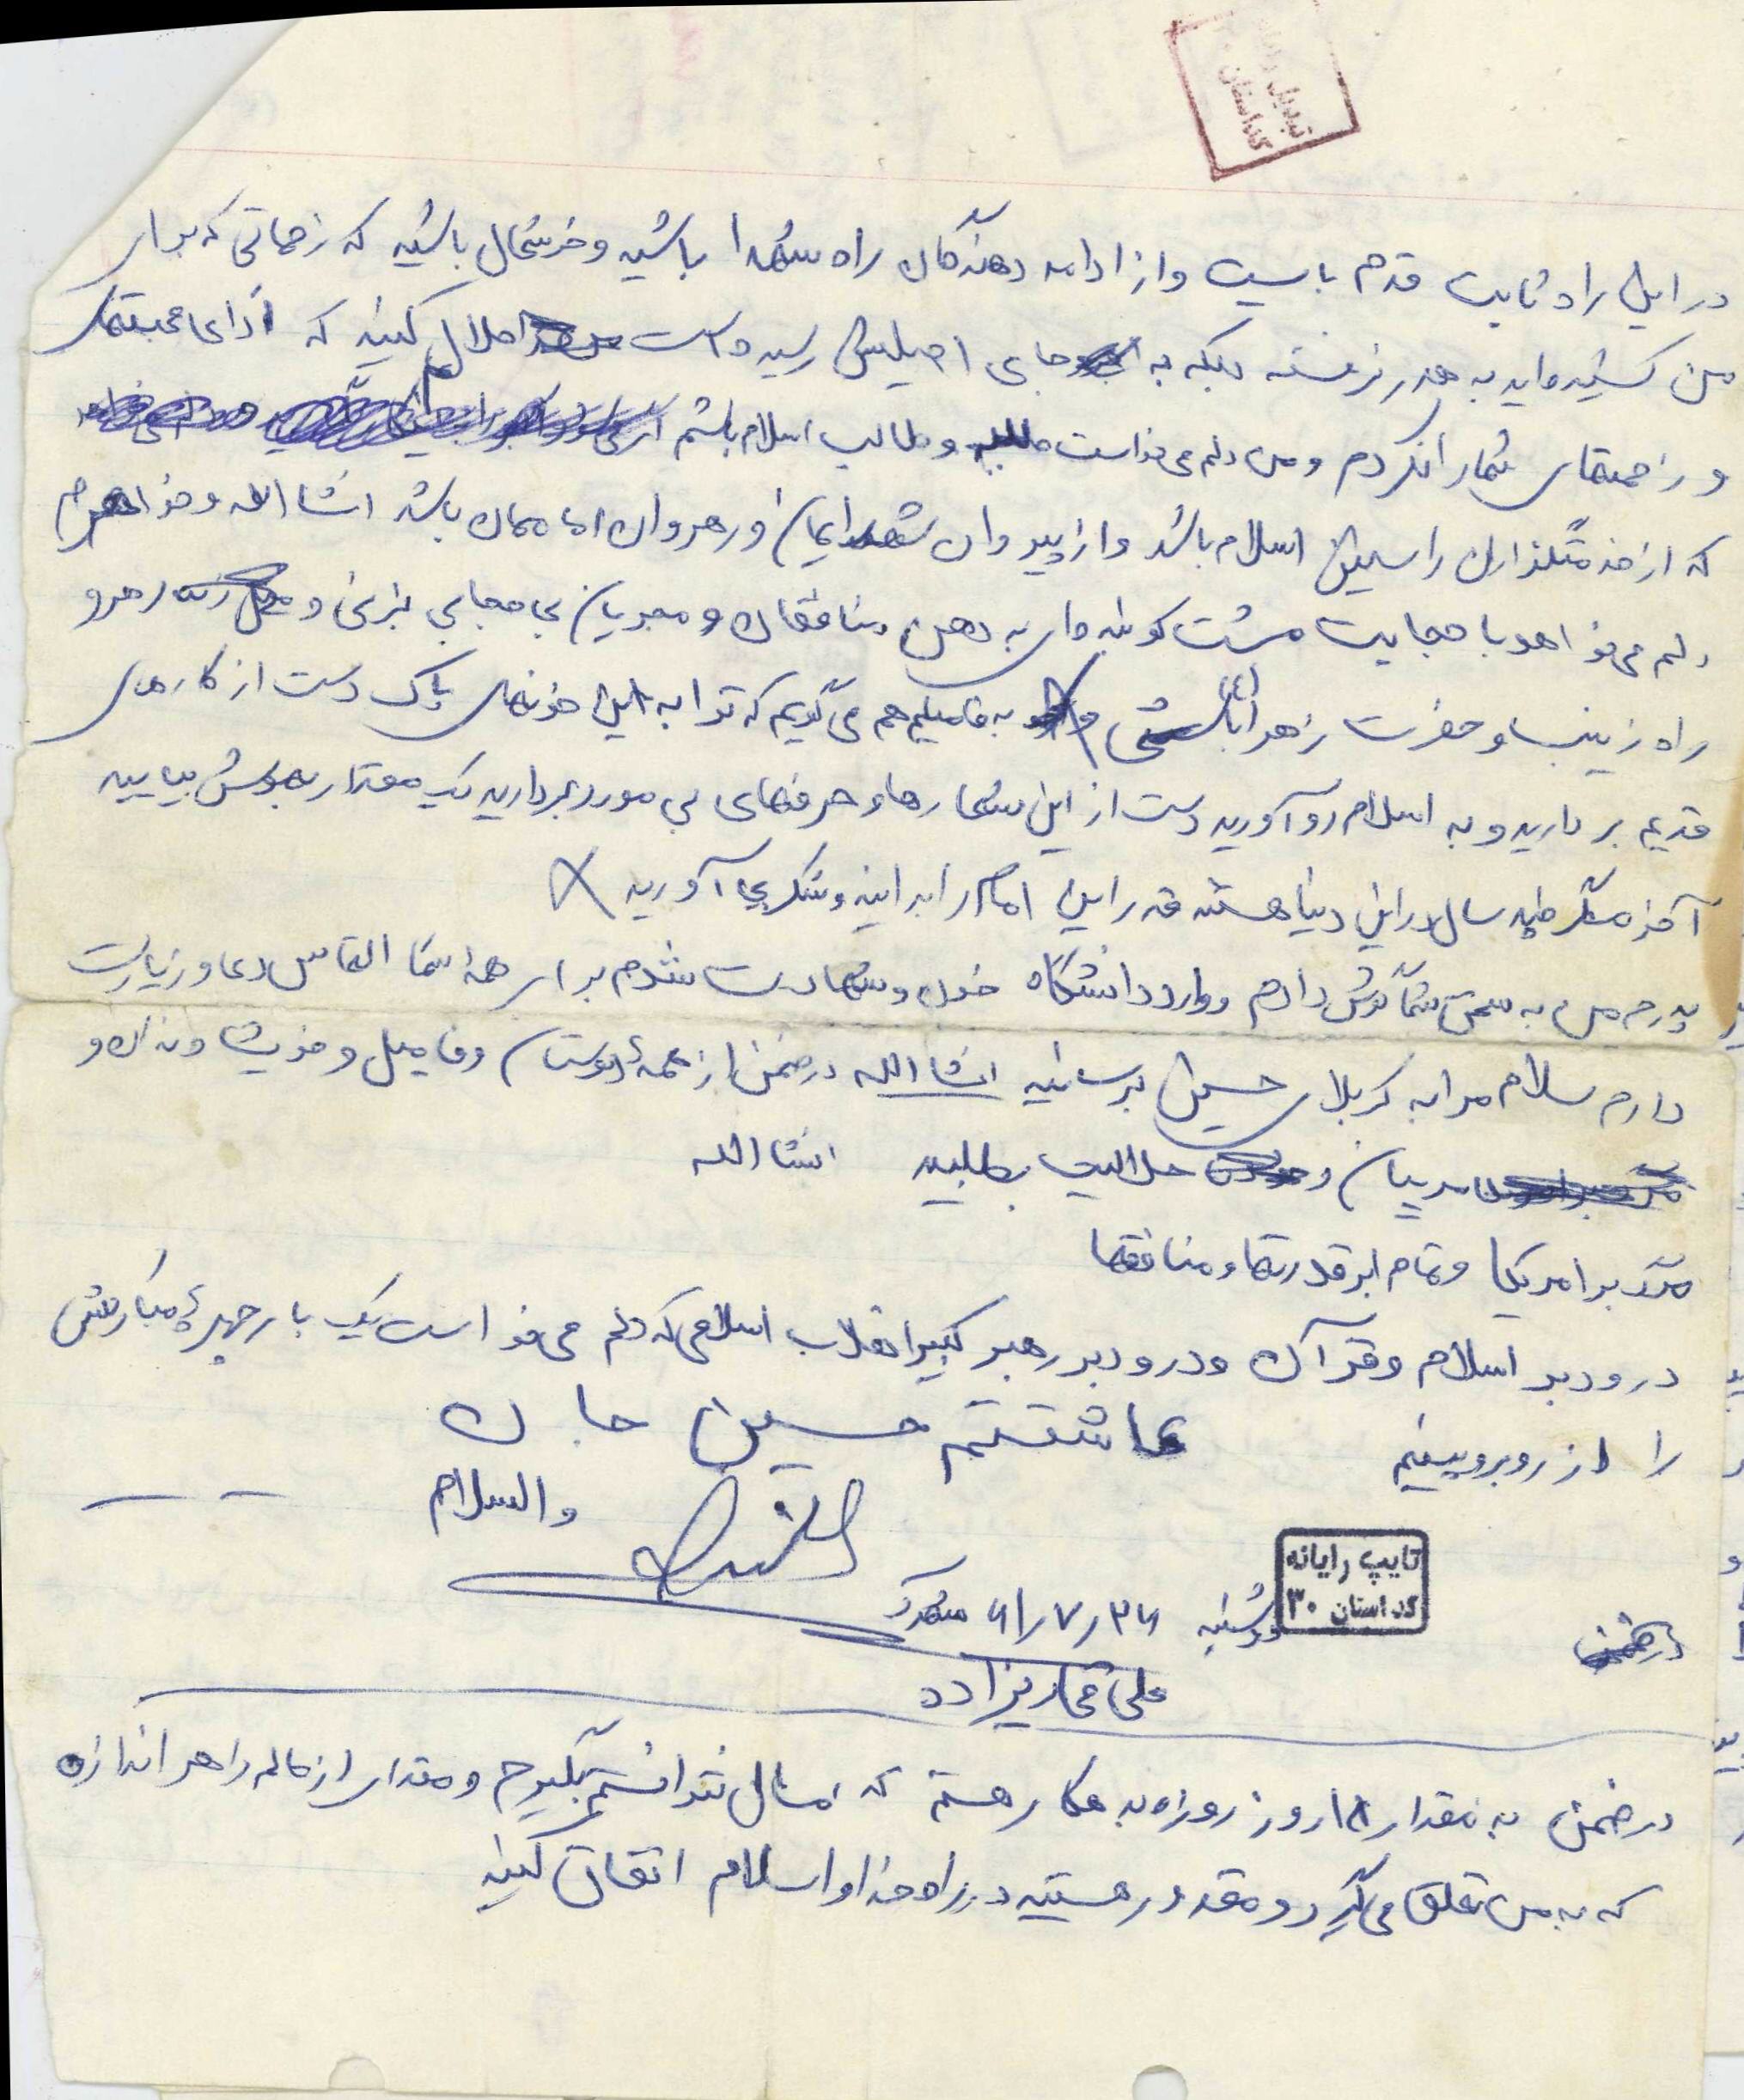 در این راه ثابت قدم باسیت و از ادامه دهندگان راه شهدا باشید و خوشحال باشید که زحماتی که برای
من کشیده اید به هدر نرفته بلکه به جای اصیلش رسیده است حلال کنید که ادای محبتهای
و زحمتهای شما را نکردم و من دلم می خواست و طالب اسلام باشم
که از خدمتگذاران راستین اسلام باشد و از پیروان شهدایمان و رهروان اماممان باشد انشاالله و خواهرم
دلم می خواهد با حجابت مشت کوبنده ای به دهن منافقان و مجریان بی حجابی بزنی و رهرو
راه زینب و حضرت زهرا باشی به فامیلیم هم می گویم که ترا به این خونهای پاک دست از کارهای
قدیم بردارید و به اسلام رو آورید دست از این شعارها و حرفهای بی مورد بردارید یک مقدار بهوش بیایید
آخر مگر چند سال در این دنیا هستید قدر این امام را بدانید و شکر بجای آورید
پدرم من به سخن شما گوش دادم و وارد دانشگاه خون و شهادت شدم برای همه شما التماس دعا و زیارت
دارم سلام مرا به کربلای حسین برسانید انشاالله در ضمن از همهٔ دوستان و فامیل و خویشاوندان و
مربیان و حلالیت بطلبید انشاالله
مرگ بر امریکا و تمام ابرقدرتها و منافقها
درود بر اسلام و قرآن و درود بر رهبر کبیر انقلاب اسلامی که دلم می خواست یک بار چهرهٔ مبارکش
را از روبرو ببینم عاشقتم حسین جان
والسلام
تایپ رایانه
کد استان ۳۰
دوشنبه ۶۱/۷/۲۶
در ضمن
علی غفاریزاده
در ضمن به مقدار ۱۸ روز روزه بدهکار هستم که امسال نتوانستم بگیرم و مقداری از مالم را هر اندازه
که به من تعلق می گیرد و مقدور هستید در راه خدا و اسلام انفاق کنید